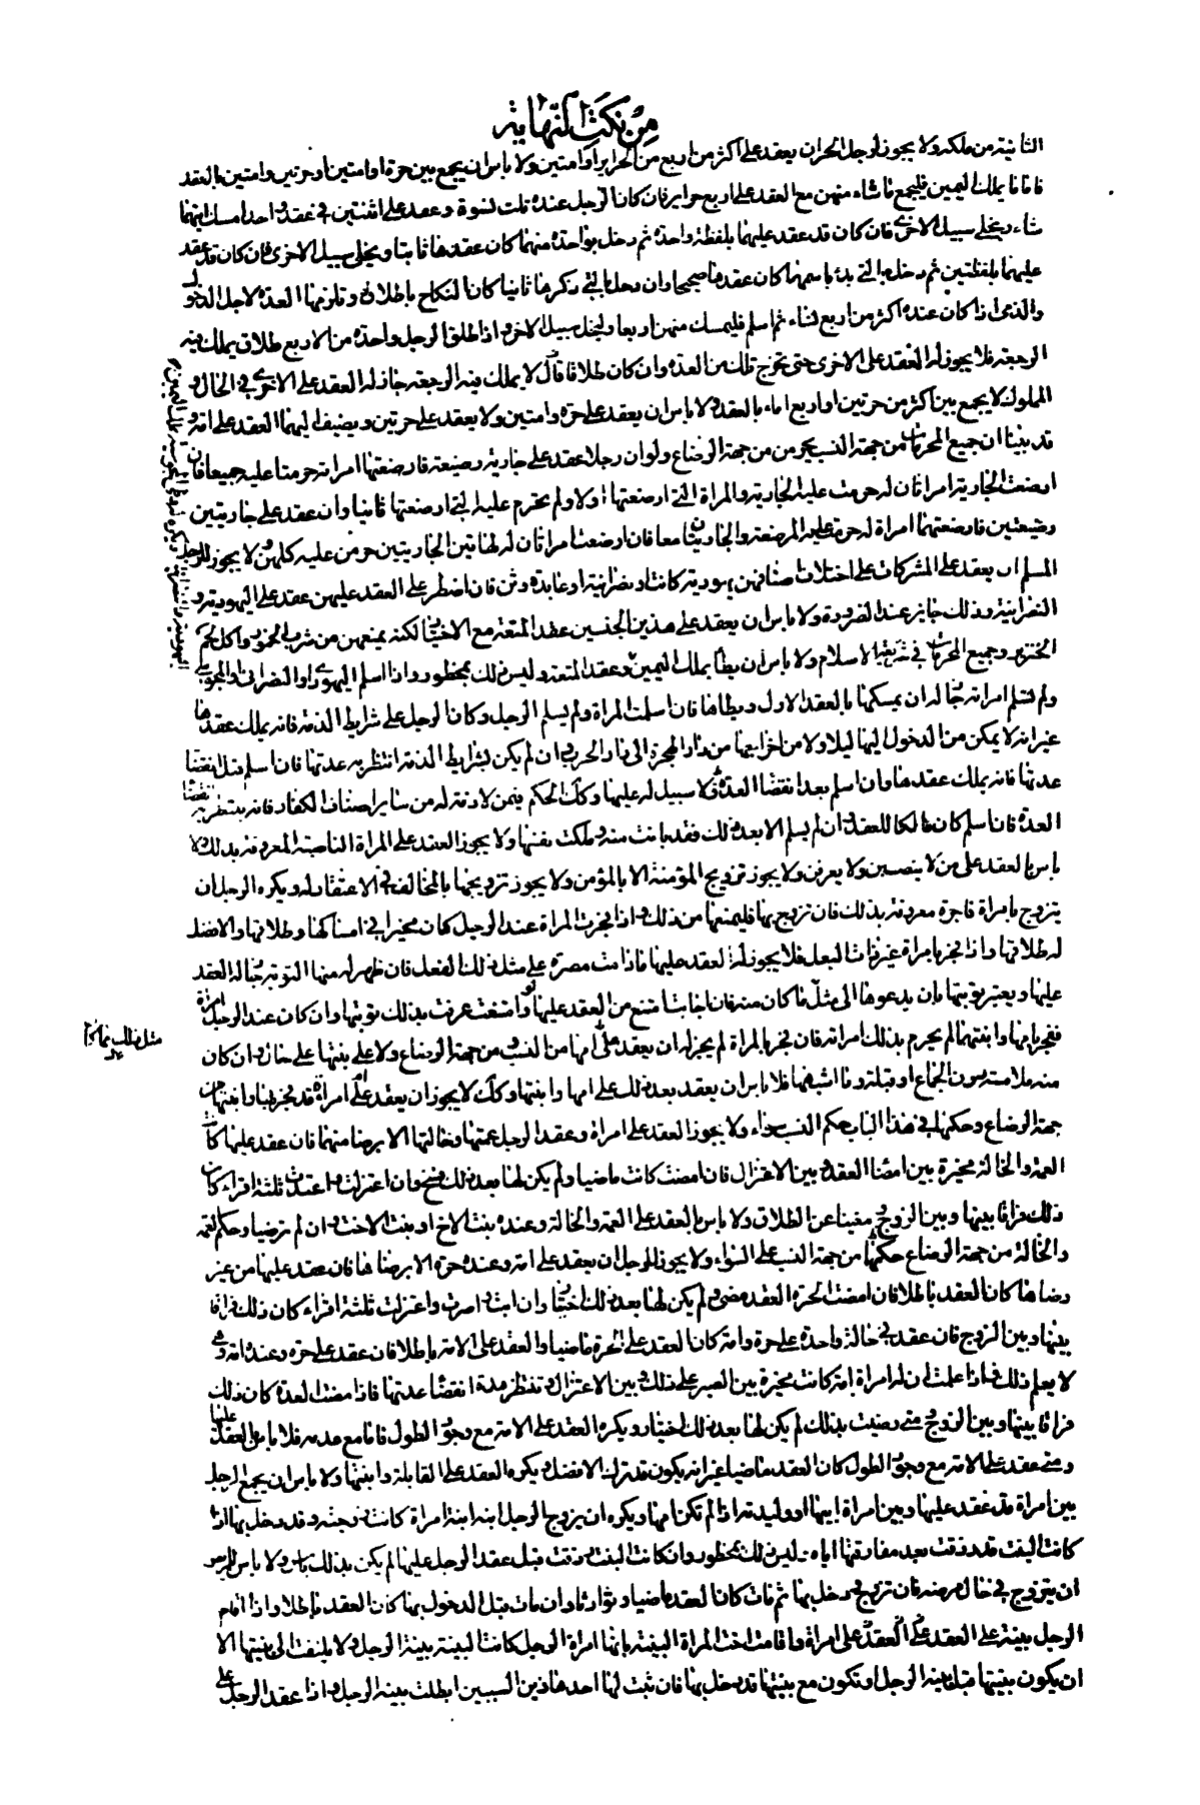 من نكت النهاية
الثانية من ملكه ولا يجوز لرجل الحر ان يعقد على اكثر من اربع من الحراير او امتين ولا باس ان يجمع بين حرة او امتين او حرتين وامتين بالعقد
فاما بملك اليمين فليجمع ما شاء منهن مع العقد على اربع حراير فان كان الرجل عنده ثلث نسوة وعقد على اثنتين في عقد واحد امسك ايتهما
شاء ويخلى سبيل الاخرى فان كان قد عقد عليهما بلفظة واحدة ثم دخل بواحدة منهما كان عقدها ثابتا ويخلى سبيل الاخرى فان كان قد عقد
عليهما بلفظتين ثم دخل بالتي بدء باسمها كان عقدها صحيحا وان دخل بالتي ذكرها ثانيا كان النكاح باطلا وتلزمها العدة لاجل الدخول
والذمى اذا كان عنده اكثر من اربع نساء ثم اسلم فليمسك منهن اربعا وليخل سبيل الاخر واذا طلق الرجل واحدة من الاربع طلاق يملك فيه
الرجعة فلا يجوز له العقد على الاخرى حتى تخرج تلك من العدة وان كان طلاقا لا يملك فيه الرجعة جاز له العقد على الاخرى في الحال و
المملوك لا يجمع بين اكثر من حرتين او اربع اماء بالعقد ولا باس ان يعقد على حرة وامتين ولا يعقد على حرتين ويضيف اليهما العقد على امة و
قد بينا ان جميع المحرمات من جهة النسب يحرمن من جهة الرضاع ولو ان رجلا عقد على جارية رضيعة فارضعتها امراته حرمتا عليه جميعا فان
ارضعت الجارية امراتان له حرمت عليه الجارية والمراة التي ارضعتها اولا ولم يحرم عليه التي ارضعتها ثانيا وان عقد على جاريتين
رضيعتين فارضعتهما امراة له حرمت عليه المرضعة والجاريتان معا فان ارضعت امراتان له هاتين الجاريتين حرمن عليه كلهن ولا يجوز للرجل
المسلم ان يعقد على المشركات على اختلاف اصنافهن يهودية كانت او نصرانية او عابدة وثن فان اضطر على العقد عليهن عقد على اليهودية و
النصرانية وذلك جايز عند الضرورة ولا باس ان يعقد على هذين الجنسين عقد المتعة مع الاختيار لكنه يمنعهن من شرب الخمور واكل لحم
الخنزير وجميع المحرمات في شريعة الاسلام ولا باس ان يطأ بملك اليمين وعقد المتعة وليس ذلك بمحظور واذا اسلم اليهودى او النصرانى والمجوسى
ولم تسلم امراته جاز له ان يمسكها بالعقد الاول ويطاها فان اسلمت المراة ولم يسلم الرجل وكان الرجل على شرايط الذمة فانه يملك عقدها
غير انه لا يمكن من الدخول اليها ليلا ولا من اخراجها من دار الهجرة الى دار الحرب وان لم يكن بشرايط الذمة انتظر به عدتها فان اسلم قبل انقضا
عدتها فانه يملك عقدها وان اسلم بعد انقضا العدة فلا سبيل له عليها وكذلك الحكم فيمن لا ذمة له من ساير اصناف الكفار فانه ينتظر به انقضا
العدة فان اسلم كان مالكا للعقد وان لم يسلم الا بعد ذلك فقد بانت منه وملكت نفسها ولا يجوز العقد على المراة الناصبة المعروفة بذلك ولا
باس بالعقد على من لا ينصبن ولا يعرفن ولا يجوز تزويج المؤمنة الا بالمؤمن ولا يجوز تزويجها بالمخالف في الاعتقاد له ويكره الرجل ان
يتزوج بامراة فاجرة معروفة بذلك فان تزوج بها فليمنعها من ذلك واذا فجرت المراة عند الرجل كان مخيرا في امساكها وطلاقها والافضل
له طلاقها واذا فجر بامراة غير ذات البعل فلا يجوز له العقد عليها ما دامت مصرة على مثل ذلك الفعل فان ظهر له منها التوبة جاز له العقد
عليها ويعتبر توبتها بان يدعوها الى مثل ما كان منه فان اجابت امتنع من العقد عليها ولو امتنعت عرفت بذلك توبتها وان كان عند الرجل امراة
ففجر بامها وابنتها لم يحرم بذلك امراته فان فجر بالمراة لم يجز له ان يعقد على امها من النسب ومن جهة الرضاع ولا على بنتها على حال وان كان
منه ملامسة دون الجماع او قبلة وما اشبهها فلا باس ان يعقد بعد ذلك على امها وابنتها وكذلك لا يجوز ان يعقد على امراة قد فجر بها وابنتها من
جهة الرضاع وحكمها في هذا الباب حكم النسب سواء ولا يجوز العقد على امراة وعقد الرجل عمتها وخالتها الا برضا منهما فان عقد عليها كانت
العمة والخالة مخيرة بين امضا العقد وبين الاعتزال فان امضت كانت ماضيا ولم يكن لها بعد ذلك فسخ وان اعتزلت واعتدت ثلثة اقراء كان
ذلك فراقا بينها وبين الزوج ومغنيا عن الطلاق ولا باس بالعقد على العمة والخالة وعنده بنت الاخ او بنت الاخت وان لم ترضيا وحكم العمة
والخالة من جهة الرضاع حكمها من جهة النسب على السواء ولا يجوز للرجل ان يعقد على امة وعنده حرة الا برضاها فان عقد عليها من غير
رضاها كان العقد باطلا فان امضت الحرة العقد مضى ولم يكن لها بعد ذلك اختيار وان ابت واصرت واعتزلت ثلثة اقراء كان ذلك فراقا
بينها وبين الزوج فان عقد في حالة واحدة على حرة وامة كان العقد على الحرة ماضيا والعقد على الامة باطلا فان عقد على حرة وعنده امة وهى
لا يعلم ذلك فاذا علمت ان له امراة امة كانت مخيرة بين الصبر على ذلك وبين الاعتزال وتنتظر مدة انقضا عدتها فاذا مضت العدة كان ذلك
فراقا بينها وبين الزوج ومتى رضيت بذلك لم يكن لها بعد ذلك اختيار ويكره العقد على الامة مع وجود الطول فاما مع عدمه فلا باس بالعقد عليها
ومتى عقد على الامة مع وجود الطول كان العقد ماضيا غير انه يكون قد ترك الافضل ويكره العقد على القابلة وابنتها ولا باس ان يجمع الرجل
بين امراة قد عقد عليها وبين امراة ابيها او وليدته اذا لم تكن امها ويكره ان يزوج الرجل ابنه ابنة امراة كانت زوجته وقد دخل بها اذا
كانت البنت قد رزقت بعد مفارقتها اياه وليس ذلك بمحظور وان كانت البنت رزقت قبل عقد الرجل عليها لم يكن بذلك باس ولا باس للمريض
ان يتزوج في حال مرضه فان تزوج ودخل بها ثم مات كان العقد ماضيا وتوارثا وان مات قبل الدخول بها كان العقد باطلا واذا اقام
الرجل بينة على العقد على امراة واقامت اخت المراة البينة بانها امراة الرجل كانت البينة بينة الرجل ولا يلتفت الى بينتها الا
ان يكون بينتها قبل بينة الرجل او تكون مع بينتها قد دخل بها فان ثبت لها احد هذين السببين ابطلت بينة الرجل واذا عقد الرجل على
مثل ذلك